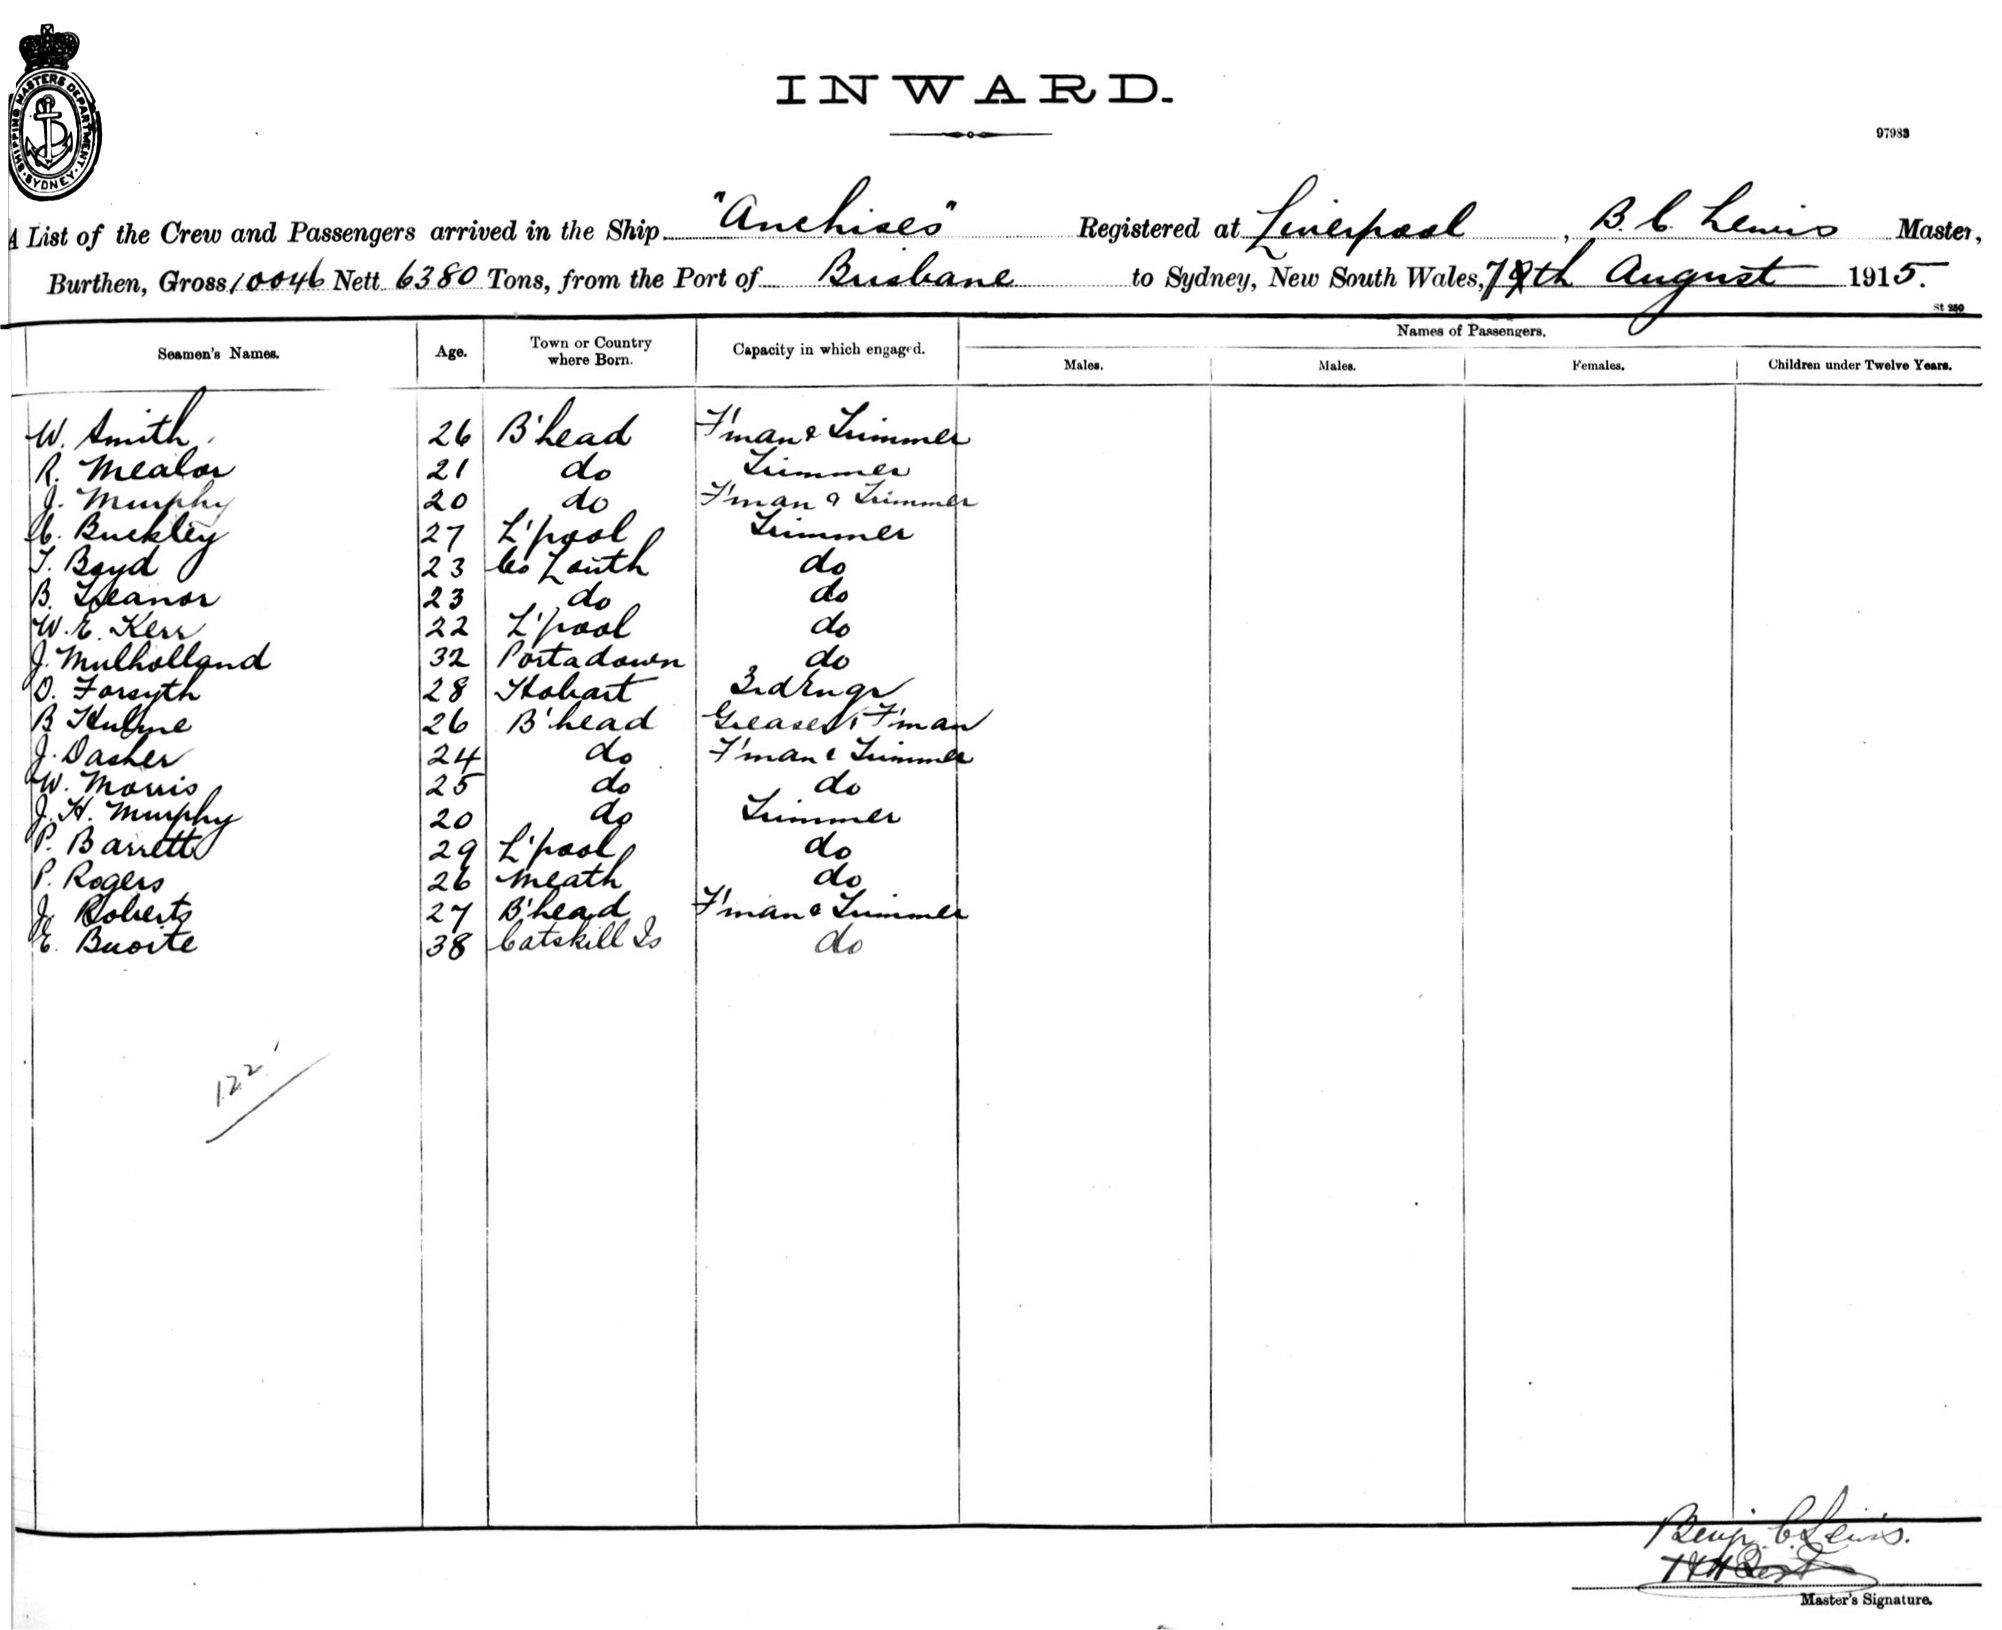 SHIPPING MASTERS DEPARTMENT · SYDNEY ·
INWARD.
97983
A List of the Crew and Passengers arrived in the Ship "Anchises" Registered at Liverpool, B. C. Lewis Master,
Burthen, Gross 10046 Nett 6380 Tons, from the Port of Brisbane to Sydney, New South Wales, August 1915.
St 250
Seamen's Names. Age. Town or Country where Born. Capacity in which engaged. Names of Passengers.
Males. Males. Females. Children under Twelve Years.
W. Smith 26 B'head F'man & Trimmer
R. Mealor 21 do Trimmer
J. Murphy 20 do F'man & Trimmer
C. Buckley 27 L'pool Trimmer
T. Boyd 23 Co Louth do
B. Treanor 23 do do
W. E. Kerr 22 L'pool do
J. Mulholland 32 Portadown do
D. Forsyth 28 Hobart 3rd Engr
B Hulme 26 B'head Greaser & F'man
J. Dasher 24 do F'man & Trimmer
W. Morris 25 do do
J. H. Murphy 20 do Trimmer
P. Barrett 29 L'pool do
P. Rogers 26 Meath do
J. Roberts 27 B'head F'man & Trimmer
E. Buoite 38 Catskill Is do
122
Benj. C. Lewis.
Master's Signature.